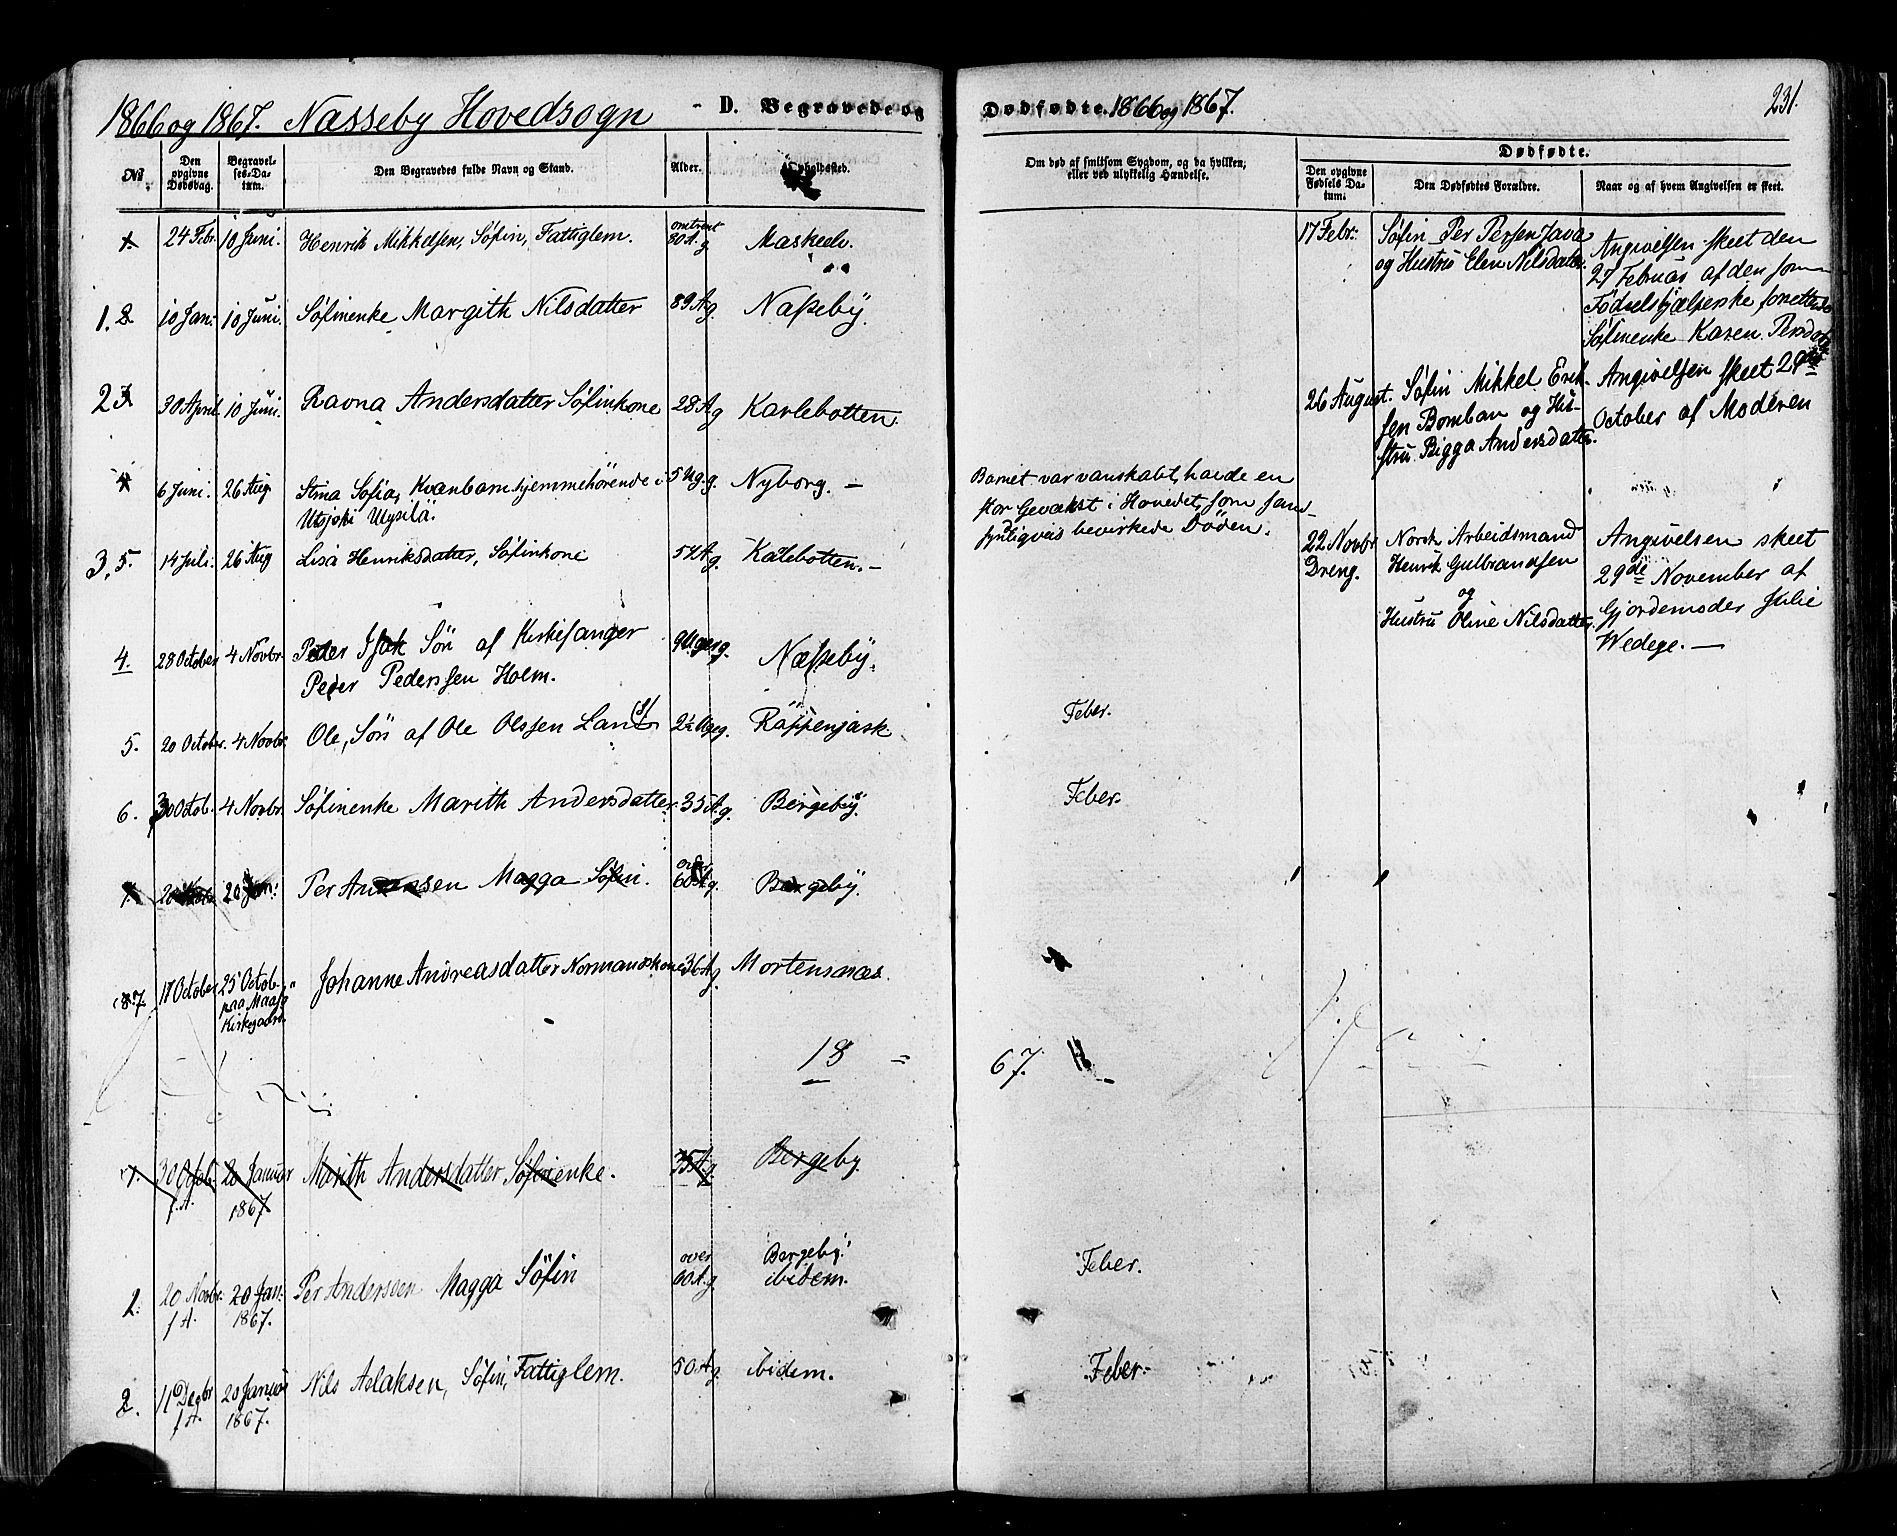 1866 og 1867. Næsseby Hovedsogn - D. Begravede og
DøDfødte. 1866 og 1867. 231.
No. Den opgivne Dødsdag. Begravelses-Datum. Den Begravedes fulde Navn og Stand. Alder. Opholdssted.
Om død af smitsom Sygdom, og da hvilken; eller ved ulykkelig Hændelse.
Dødfødte.
Den opgivne Fødsels Datum. Den Dødfødtes Forældre. Naar og af hvem Angivelsen er skeet.
1. 24 Febr. 10 Juni. Henrik Mikkelsen, Søfin, Fattiglem. omtrent 80 A. g Maskeelv.
1. 2. 10 Jan. 10 Juni. Søfinenke Margith Nilsdatter 89 A. g Næsseby.
2 3 30 April 10 Juni. Ravna Andersdatter Søfinkone 28 A g Karlebotten.
4 6 Juni. 26 Aug. Stina Sofia, Kvænbarn hjemmehörende i 5 Ug. g. Nyborg. -
Utsjoki
3, 5. 14 Juli. 26 Aug Lisa Henriksdatter, Søfinkone 52 A g. Karlebotten. -
4. 28 October 4 Novbr. Peder Isak Sön af Kirkesanger 9 Uger g. Næsseby.
Peder Pederssen Holm.
5. 20 October. 4 Novbr. Ole, Sön af Ole Olssen 2½ Ug
6. 30 Octob. 4 Novbr. Søfinenke Marith Andersdatter. 35 A. g. Bergeby.
1. 20 Jan. Per Andersen Magga Söfin. over 60 A. g. Bergeby.
8 7 18 October 25 Octob. Johanne Andreasdatter Normandskone 36 A g Mortensnæs
paa
Kirkegaard.
18 = 67.
7. 30 Octob. f. A. 20 Januar 1867 Marith Andersdatter Söfinenke. 35 A g Bergeby
1. 20 Novbr. f A. 20 Jan. 1867. Per Andersen Magga Söfin over 60 A. g Bergeby. ibidem.
2. 11 Decbr f A. 20 Januar 1867. Nils Aslaksen, Söfin, Fattiglem. 50 A g ibidem.
Barnet var vanskabt, havde en
stor Gevækst i Hovedet, som sand-
synligvis bevirkede Döden.
Feber.
Feber.
Feber.
Feber.
17 Febr. Søfin Per Persen Java
og Hustru Elen Nilsdatter.
Angivelsen skeet den
27 Februar af den som
Fødselshjælperske
Søfinenke Karen Persdatter
26 August. Søfin Mikkel Erik-
sen Bomban og Hu-
stru Bigga Andersdatter.
Angivelsen skeet 29de
October af Moderen
22 Novbr Dreng. Norsk Arbeidsmand
Henrik Gulbrandsen
og
Hustru Oline Nilsdatter.
Angivelsen skeet
29de November af
Gjordemoder Julie
Wedege. -